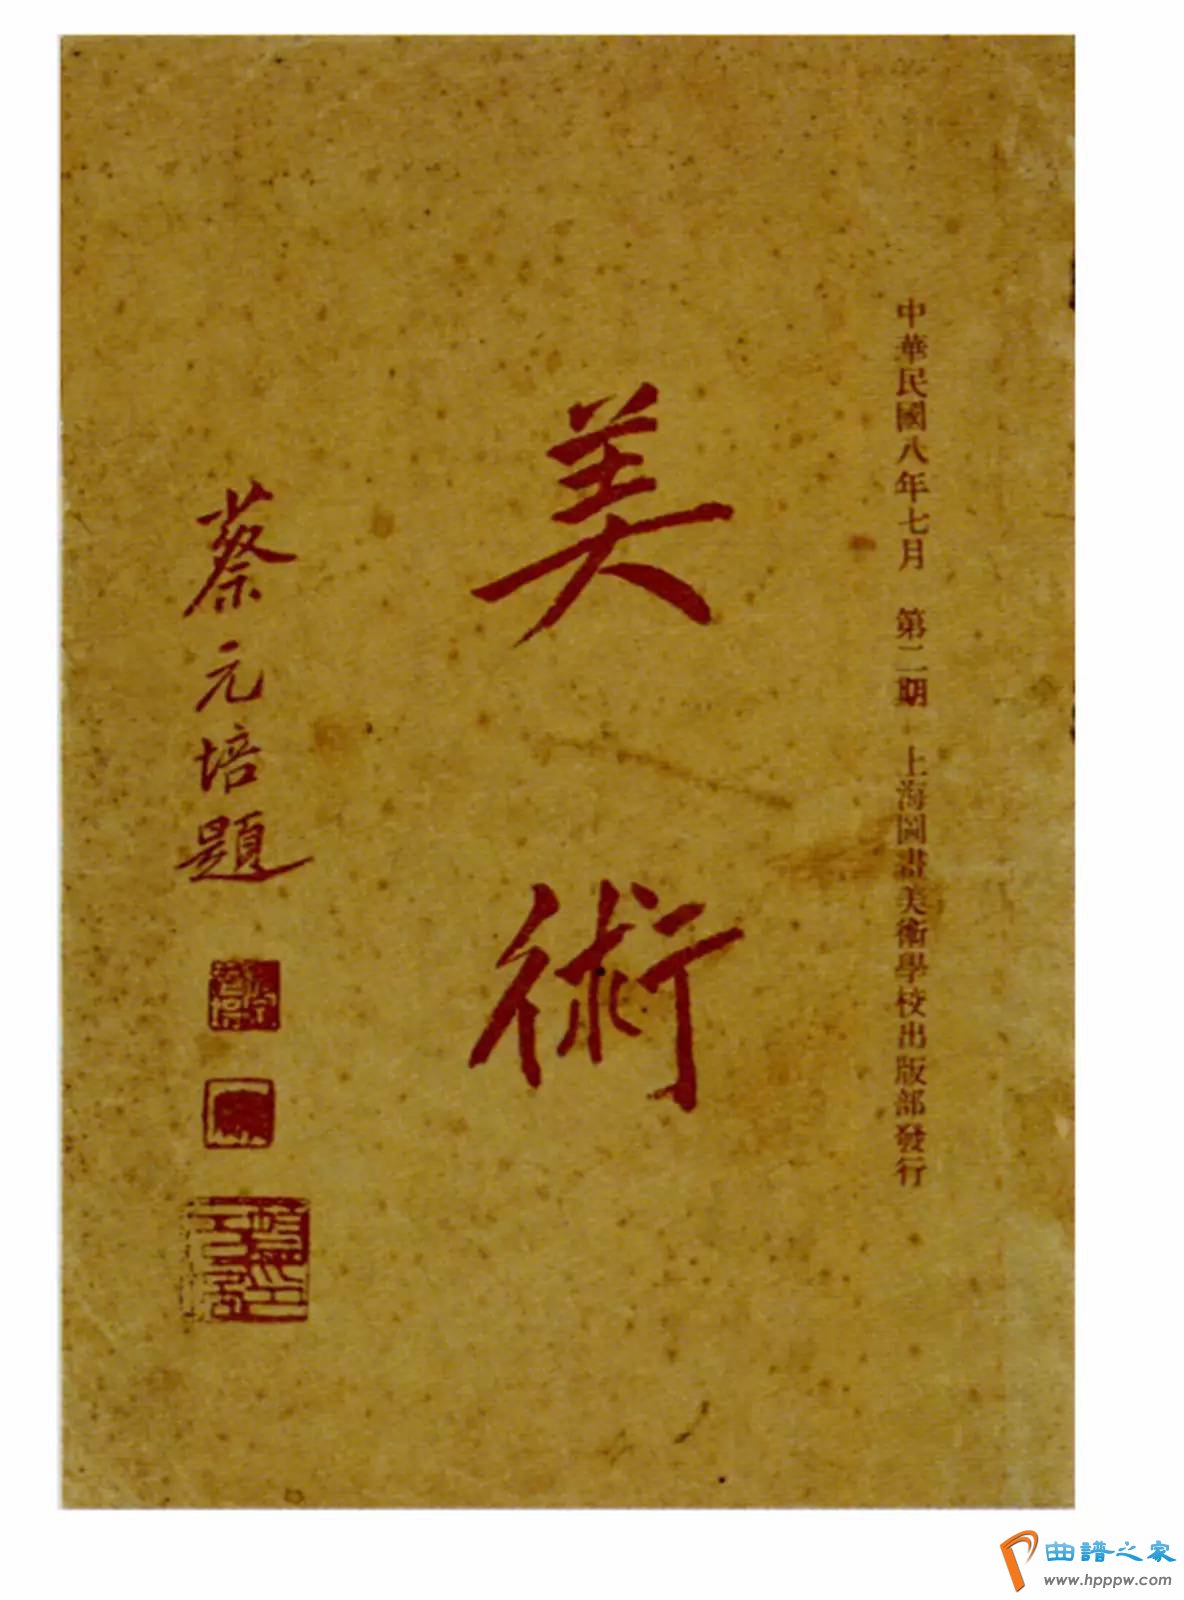 中華民國八年七月 第二期 上海圖畫美術學校出版部發行
美術
蔡元培題
曲譜之家
www.hpppw.com